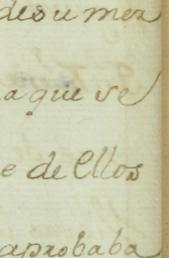 de su mer
a que se
e de ellos
aprobaba